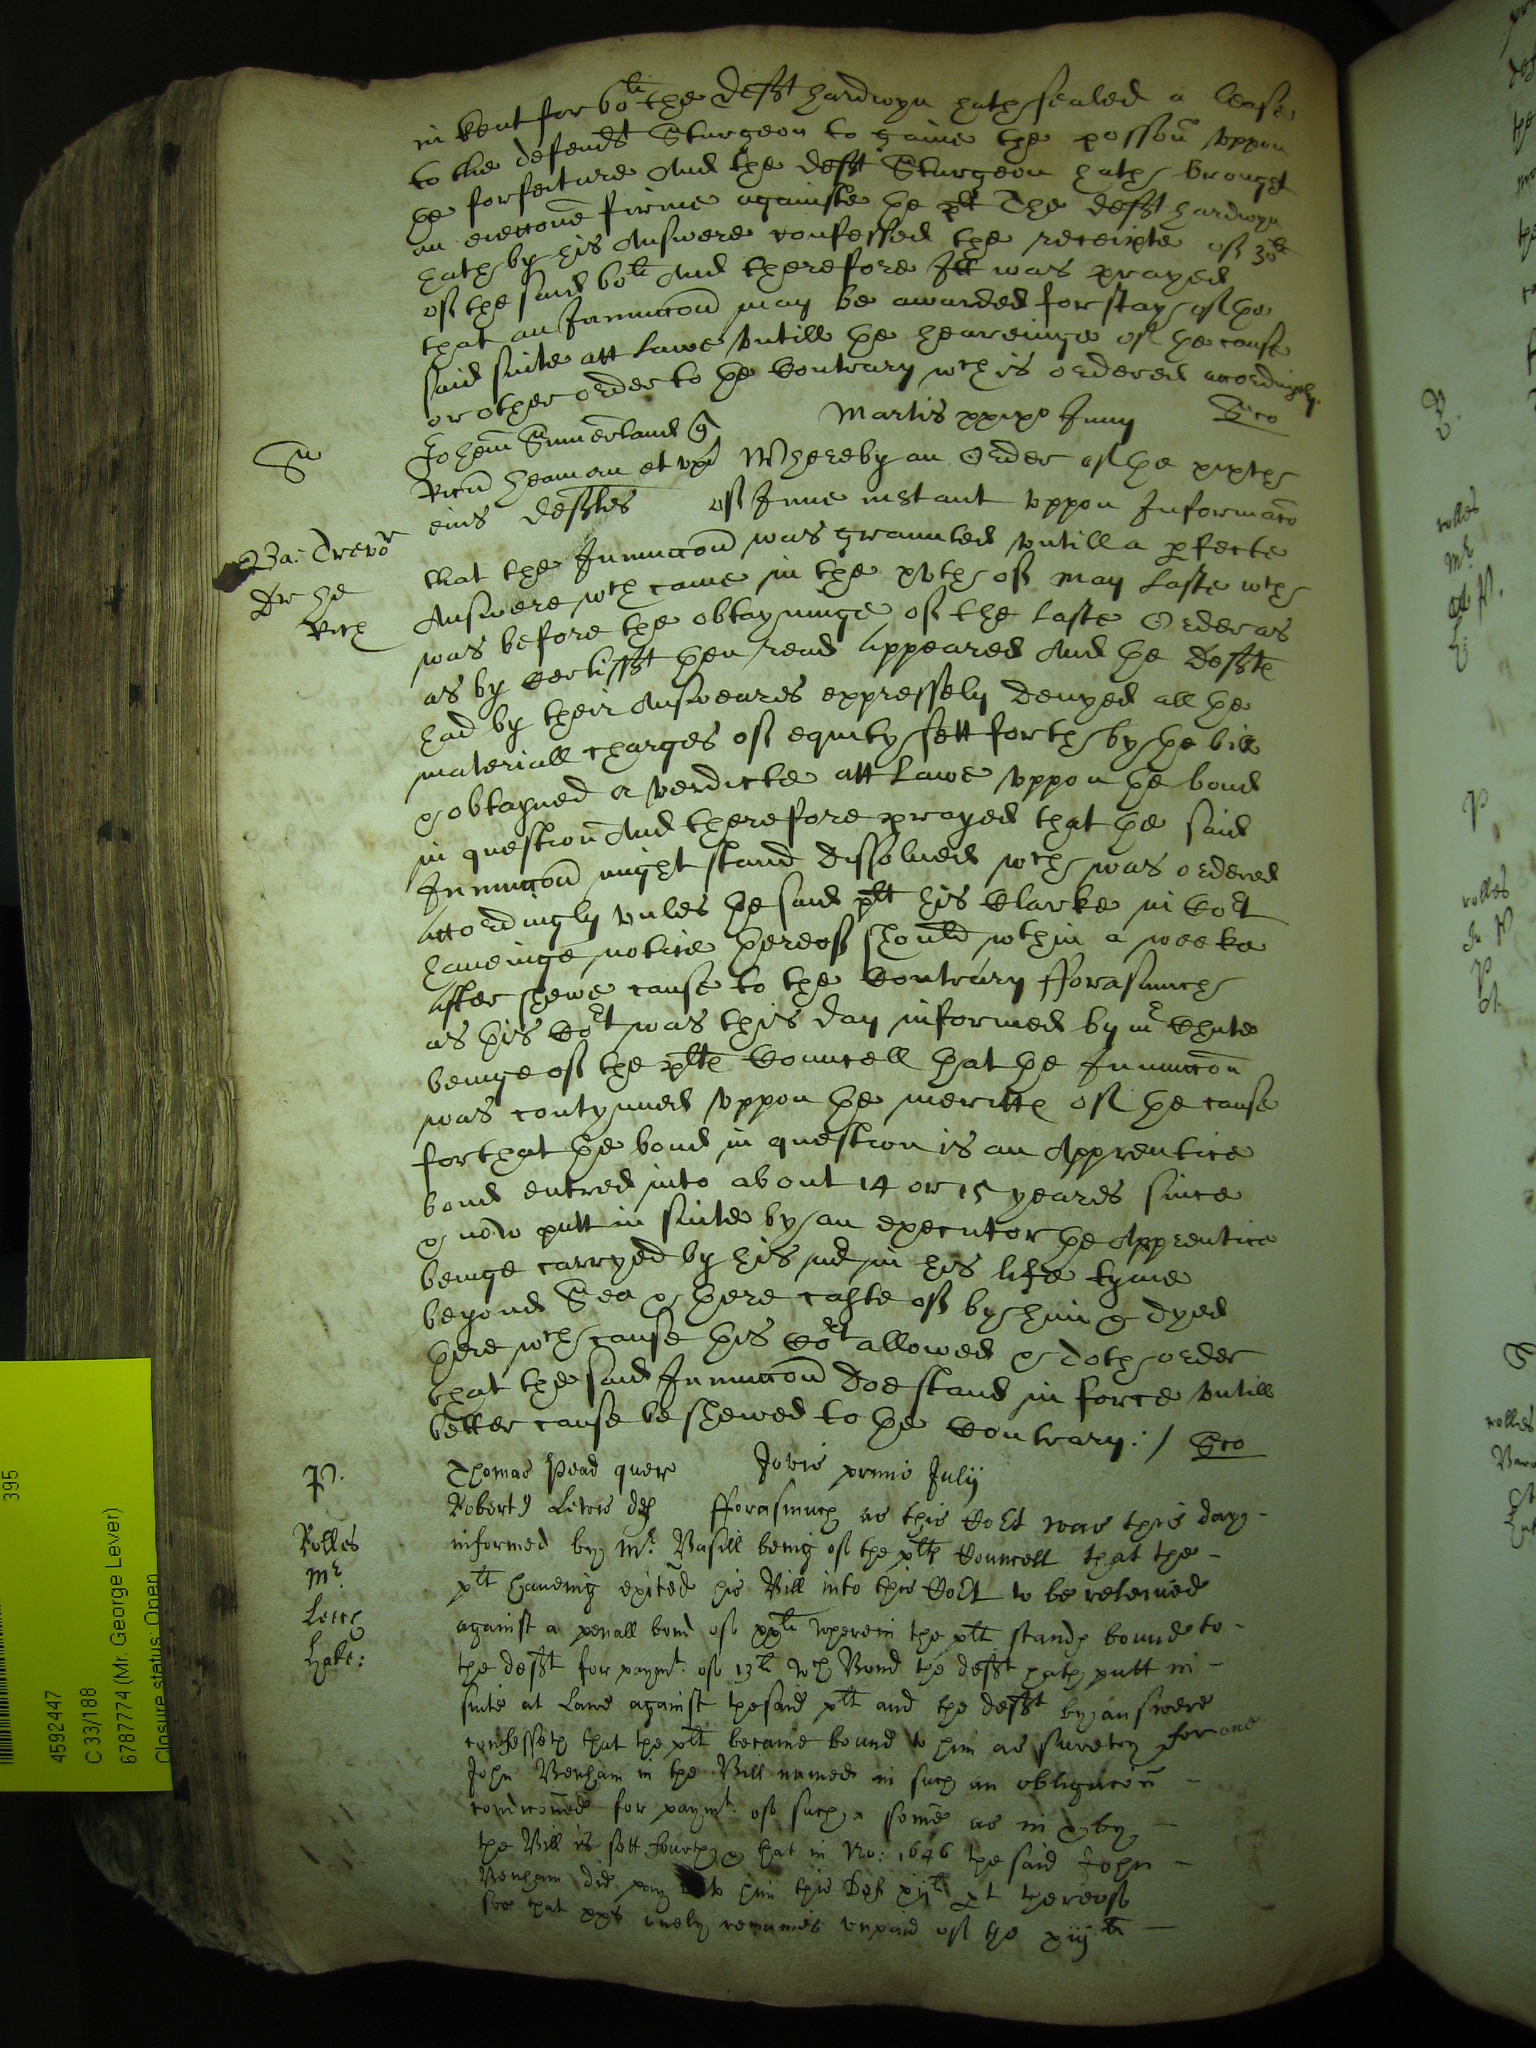 in kent for 60li the defft hardwyn hath sealed a lease
to the defendt Sturgeon to gaine the posson uppon
the forfeiture And the defft Sturgeon hath brought
an eieccone firme againste the plt The defft hardwyn
hath by his Answere confessed the receipte of 30li
of the said 60li And therefore Itt was prayed
that an Iniunccon may be awarded for stay of the
said suite att Lawe untill the heareinge of the cause
or other order to the Contrary wch is ordered accordingly
Martis xxixo Junij
Johem Sumerland
Ricum heaman et ux Whereby an Order of the xixth
eius defftes of June instant uppon Informaco
that the Iniunccon was graunted untill a pfecte
Answere wch came in the xvth of May Laste wch
was before the obtayninge of the laste Order as
as by Certifft then read Appeared And the defftes
had by their Answeares expressely denyed all the
materiall charges of equity sett forth by the bill
& obtayned a verdicte att Lawe uppon the bond
in question And therefore prayed that the said
Iniunccon might stand dissolued wch was ordered
Accordingly unles the said plt his Clarke in Cort
haueinge notice thereof should wthin a weeke
After shewe cause to the Contrary fforasmuch
as this Cort was this day informed by mr Chute
beinge of the pltes Councell that the Iniunccon
was contynued uppon the meritte of the cause
for that the bond in question is an Apprentice
bond entred into about 14 or 15 yeares since
& now putt in suite by an executor the Apprentice
beinge carryed by his mr in his life tyme
beyond Sea & there caste of by him & dyed
there wch cause this Cort allowed & doth order
that the said Iniunccon doe stand in force untill
better cause be shewed to the Contrary: /
Thomas Pead quer Jovis primo Julij
Robertus Lewis def fforasmuch as this Cort was this day
informed by Mr. Vasill being of the pltes Councell that the
plt haueing exited his Bill into this Cort to be releiued
against a penall bond of xxli wherein the plt stands bound to
the defft for paymt. of 13li wch Bond the defft hath putt in
suite at Lawe against the said plt and the defft by answere
confesseth that the plt became bound to him as surety for one
John Benham in the Bill named in such an obligacon
condiconed for paymt. of such a some as in & by
the Bill is sett fourth & that in No: 1646 the said John
Benham did pay to him this Def xijli pt thereof
soe that xxs onely remaines unpaid of the xiijli
Su
Ba: Trevor
Dr the
Rich
P.
Rolles
Mr.
Leech
Hake:
395
4592447
C 33/188
6787774 (Mr. George Lever)
Closure status: Open